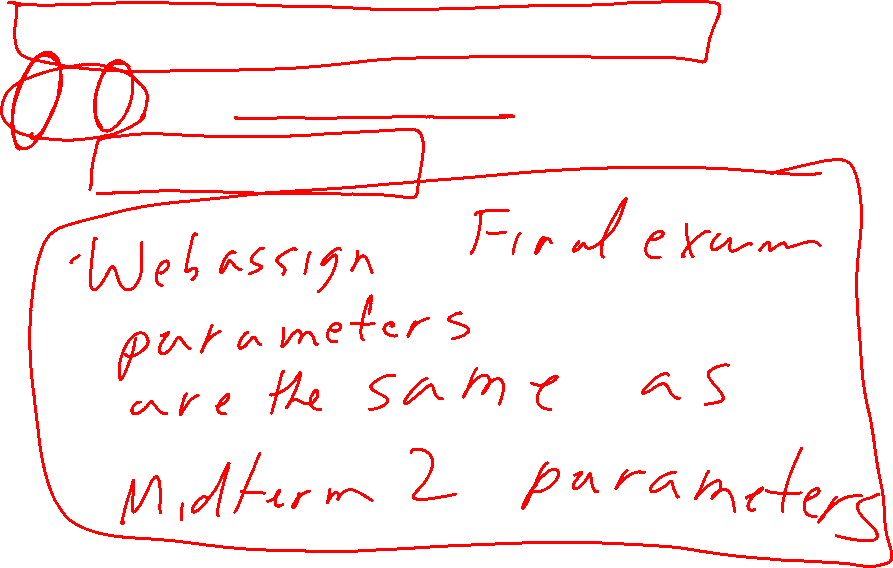 Webassign Final exam
parameters
are the same as
Midterm 2 parameters